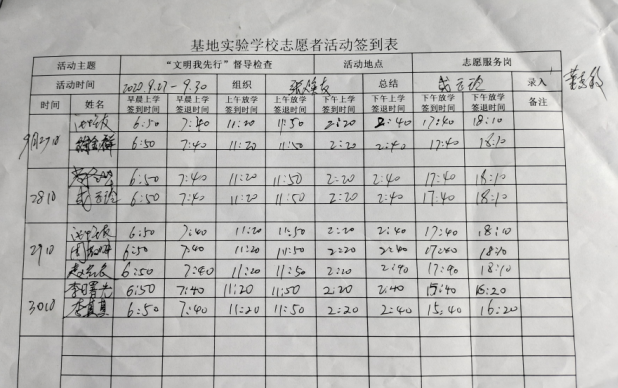 基地实验学校志愿者活动签到表
活动主题 “文明我先行”督导检查 活动地点 志愿服务岗
活动时间 2020.9.27-9.30 组织 总结 录入
时间 姓名 早晨上学签到时间 早晨上学签退时间 上午放学签到时间 上午放学签退时间 下午上学签到时间 下午上学签退时间 下午放学签到时间 下午放学签退时间 备注
9月27日 6:50 7:40 11:20 11:50 2:20 2:40 17:40 18:10
6:50 7:40 11:20 11:50 2:20 2:40 17:40 18:10
28日 6:50 7:40 11:20 11:50 2:20 2:40 17:40 18:10
6:50 7:40 11:20 11:50 2:20 2:40 17:40 18:10
29日 6:50 7:40 11:20 11:50 2:20 2:40 17:40 18:10
6:50 7:40 11:20 11:50 2:20 2:40 17:40 18:10
6:50 7:40 11:20 11:50 2:20 2:40 17:40 18:10
30日 6:50 7:40 11:20 11:50 2:20 2:40 15:40 16:20
6:50 7:40 11:20 11:50 2:20 2:40 15:40 16:20